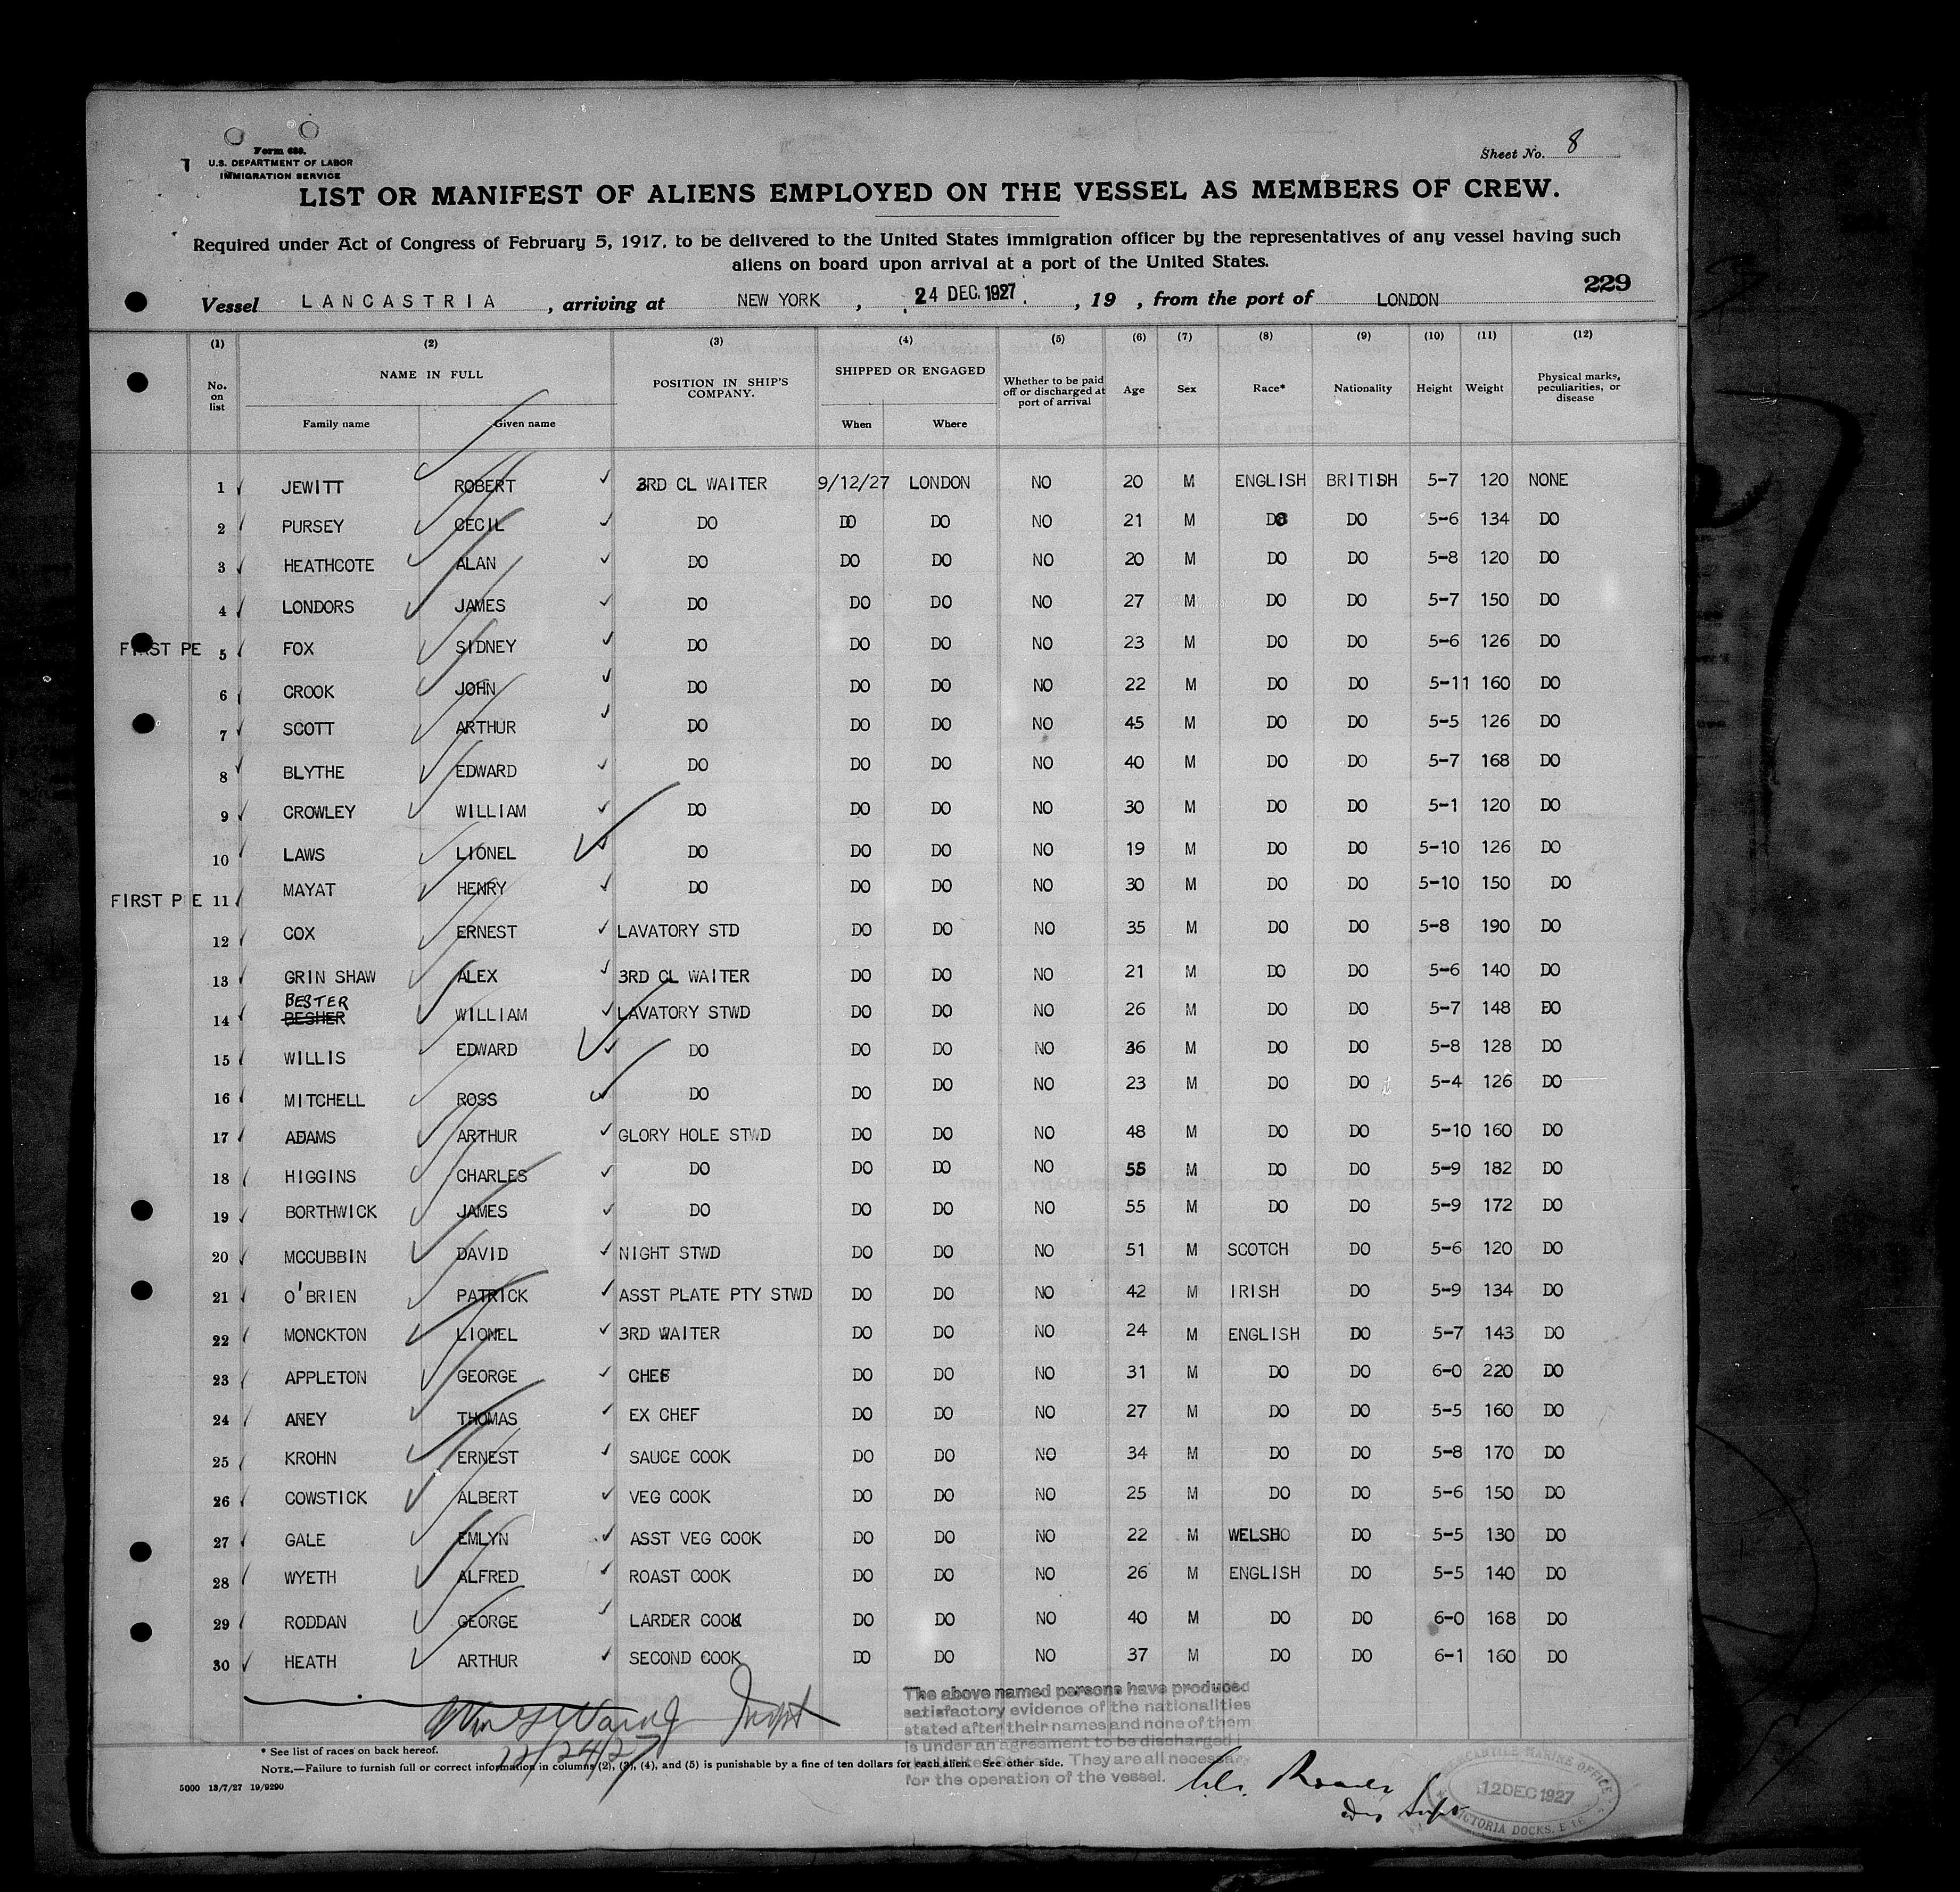 Form 689.
U.S. DEPARTMENT OF LABOR
IMMIGRATION SERVICE
Sheet No. 8
LIST OR MANIFEST OF ALIENS EMPLOYED ON THE VESSEL AS MEMBERS OF CREW.
Required under Act of Congress of February 5, 1917, to be delivered to the United States immigration officer by the representatives of any vessel having such
aliens on board upon arrival at a port of the United States.
229
Vessel LANCASTRIA, arriving at NEW YORK, 24 DEC. 1927, 19 , from the port of LONDON
(1) (2) (3) (4) (5) (6) (7) (8) (9) (10) (11) (12)
No. on list NAME IN FULL Family name Given name POSITION IN SHIP'S COMPANY. SHIPPED OR ENGAGED When Where Whether to be paid off or discharged at port of arrival Age Sex Race* Nationality Height Weight Physical marks, peculiarities, or disease
1 JEWITT ROBERT 3RD CL WAITER 9/12/27 LONDON NO 20 M ENGLISH BRITISH 5-7 120 NONE
2 PURSEY CECIL DO DO DO NO 21 M DO DO 5-6 134 DO
3 HEATHCOTE ALAN DO DO DO NO 20 M DO DO 5-8 120 DO
4 LONDORS JAMES DO DO DO NO 27 M DO DO 5-7 150 DO
FIRST PE 5 FOX SIDNEY DO DO DO NO 23 M DO DO 5-6 126 DO
6 CROOK JOHN DO DO DO NO 22 M DO DO 5-11 160 DO
7 SCOTT ARTHUR DO DO DO NO 45 M DO DO 5-5 126 DO
8 BLYTHE EDWARD DO DO DO NO 40 M DO DO 5-7 168 DO
9 CROWLEY WILLIAM DO DO DO NO 30 M DO DO 5-1 120 DO
10 LAWS LIONEL DO DO DO NO 19 M DO DO 5-10 126 DO
FIRST P E 11 MAYAT HENRY DO DO DO NO 30 M DO DO 5-10 150 DO
12 COX ERNEST LAVATORY STD DO DO NO 35 M DO DO 5-8 190 DO
13 GRIN SHAW ALEX 3RD CL WAITER DO DO NO 21 M DO DO 5-6 140 DO
BESTER
14 BESHER WILLIAM LAVATORY STWD DO DO NO 26 M DO DO 5-7 148 DO
15 WILLIS EDWARD DO DO DO NO 36 M DO DO 5-8 128 DO
16 MITCHELL ROSS DO DO DO NO 23 M DO DO 5-4 126 DO
17 ADAMS ARTHUR GLORY HOLE STWD DO DO NO 48 M DO DO 5-10 160 DO
18 HIGGINS CHARLES DO DO DO NO 55 M DO DO 5-9 182 DO
19 BORTHWICK JAMES DO DO DO NO 55 M DO DO 5-9 172 DO
20 MCCUBBIN DAVID NIGHT STWD DO DO NO 51 M SCOTCH DO 5-6 120 DO
21 O'BRIEN PATRICK ASST PLATE PTY STWD DO DO NO 42 M IRISH DO 5-9 134 DO
22 MONCKTON LIONEL 3RD WAITER DO DO NO 24 M ENGLISH DO 5-7 143 DO
23 APPLETON GEORGE CHEF DO DO NO 31 M DO DO 6-0 220 DO
24 ANEY THOMAS EX CHEF DO DO NO 27 M DO DO 5-5 160 DO
25 KROHN ERNEST SAUCE COOK DO DO NO 34 M DO DO 5-8 170 DO
26 COWSTICK ALBERT VEG COOK DO DO NO 25 M DO DO 5-6 150 DO
27 GALE EMLYN ASST VEG COOK DO DO NO 22 M WELSH DO 5-5 130 DO
28 WYETH ALFRED ROAST COOK DO DO NO 26 M ENGLISH DO 5-5 140 DO
29 RODDAN GEORGE LARDER COOK DO DO NO 40 M DO DO 6-0 168 DO
30 HEATH ARTHUR SECOND COOK DO DO NO 37 M DO DO 6-1 160 DO
The above named persons have produced
satisfactory evidence of the nationalities
stated after their names and none of them
is under an agreement to be discharged
They are all necessary
for the operation of the vessel.
12/24/27
* See list of races on back hereof.
NOTE.—Failure to furnish full or correct information in columns (2), (3), (4), and (5) is punishable by a fine of ten dollars for each alien. See other side.
5000 13/7/27 19/9290
MERCANTILE MARINE OFFICE
12 DEC 1927
VICTORIA DOCKS, E 16